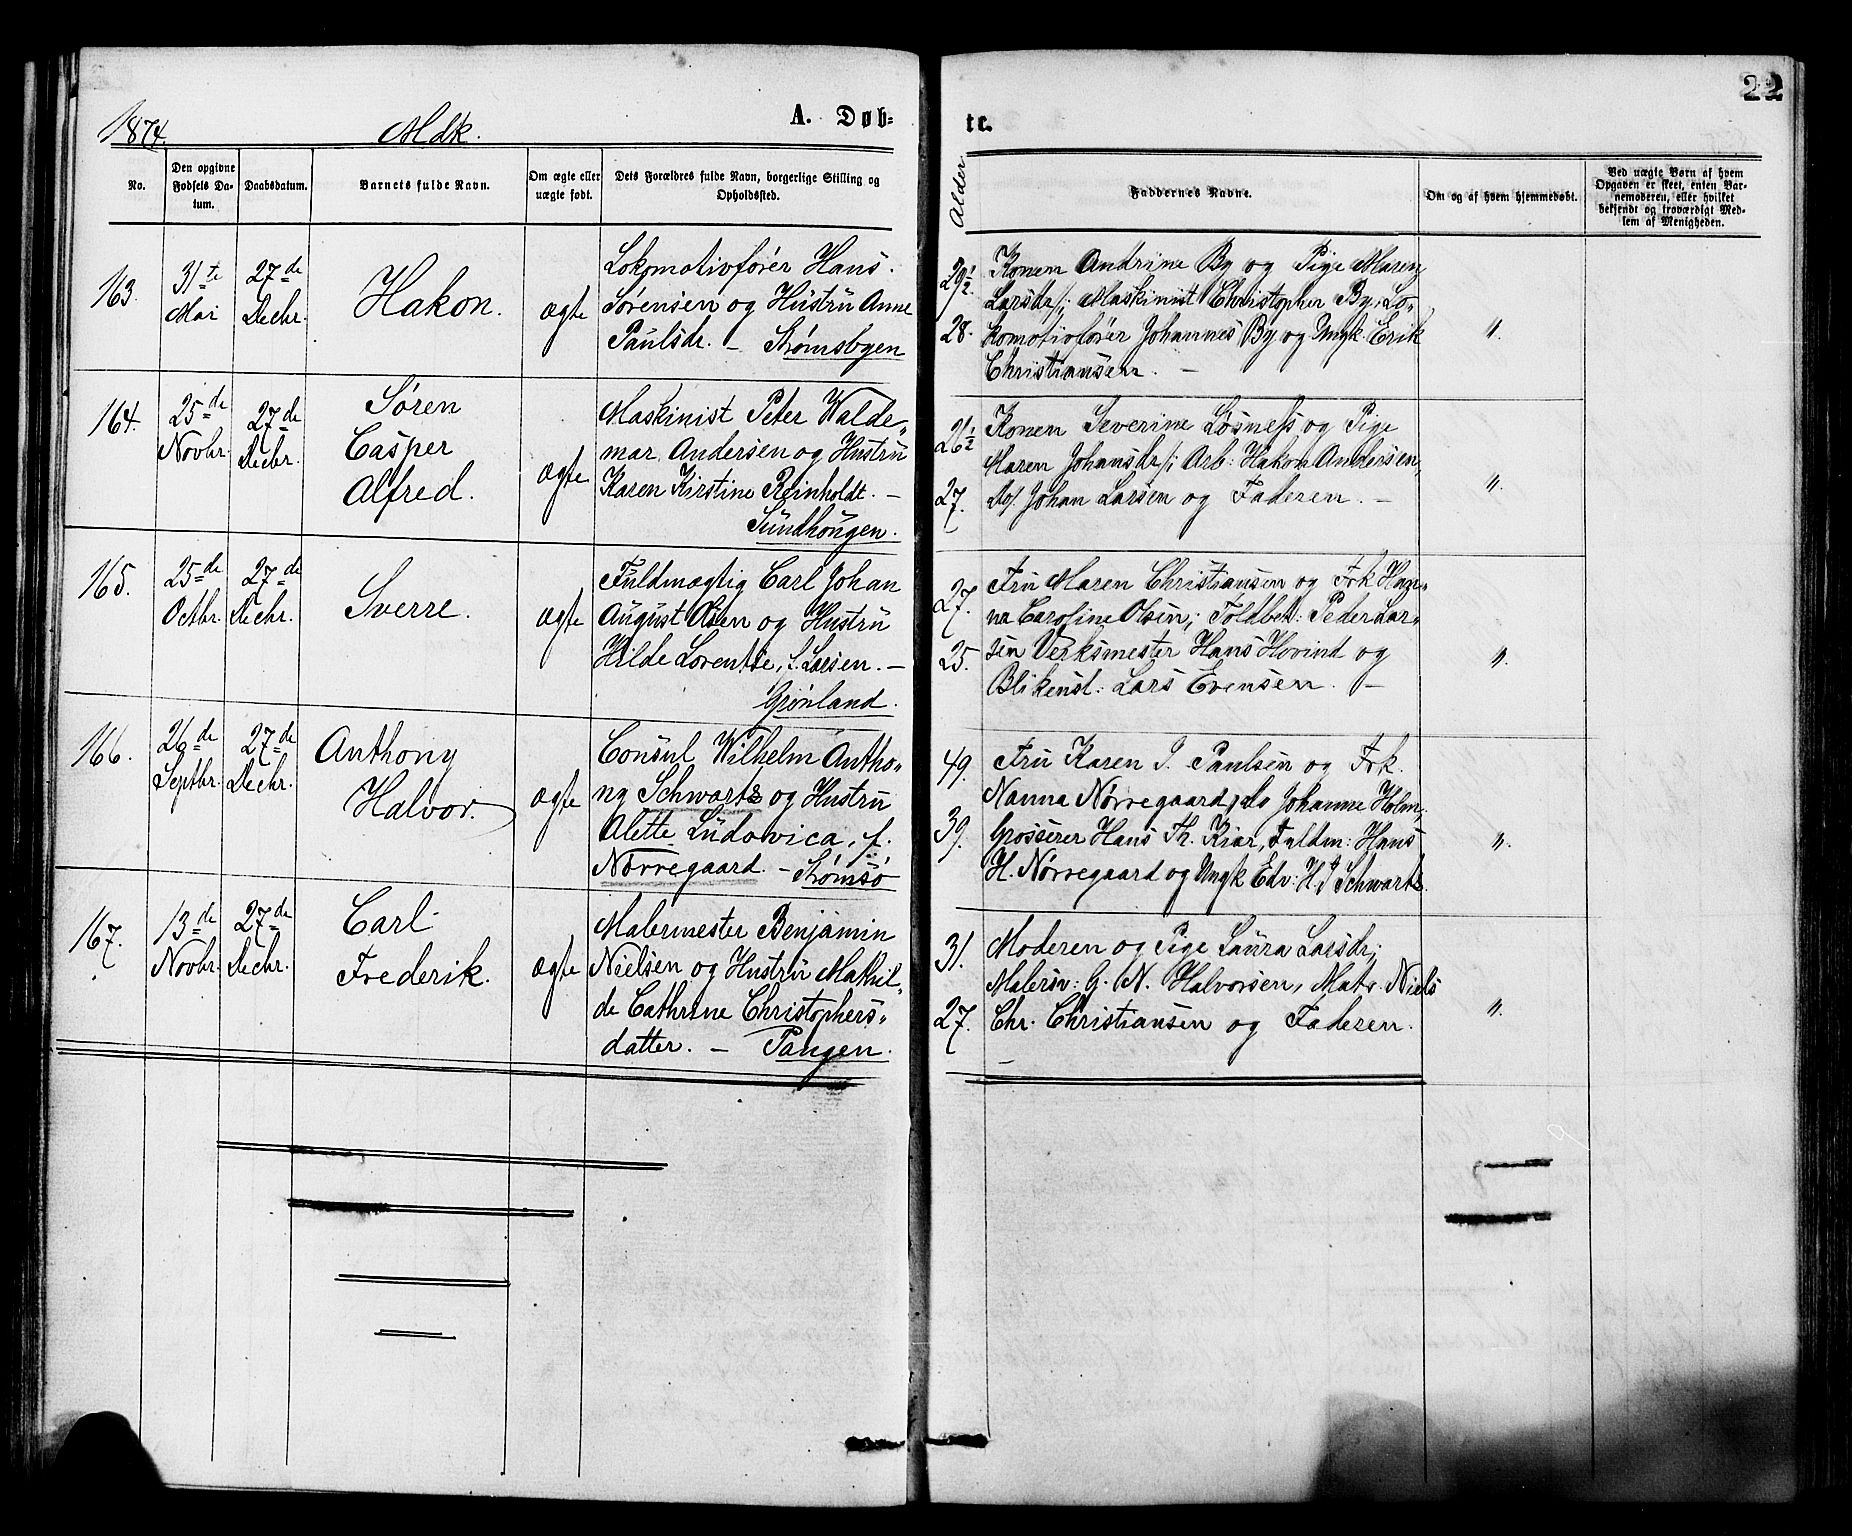 1874. Mdk. A. Døb-
No.
Den opgivne Fødsels Da-tum.
Daabsdatum.
Barnets fulde Navn.
Om ægte eller uægte født.
Dets Forældres fulde Navn, borgerlige Stilling og Opholdssted.
163.
31te Mai
27de Decbr.
Hakon.
ægte
Lokomotivfører Hans
Sørensen og Hustru Anne
Paulsdr. – Strømsbyen
164.
25de Novbr.
27de Decbr.
Søren
Casper
Alfred.
ægte
Maskinist Peter Walde-
mar Andersen og Hustru
Karen Kirstine Reinholdt. –
Sundhougen.
165.
25de Octbr.
27de Decbr.
Sverre.
ægte
Fuldmægtig Carl Johan
August Olsen og Hustru
Hilde Lorentse, f. Larsen. –
Grønland.
166.
26de Septbr.
27de Decbr.
Anthony
Halvor.
ægte
Consul Wilhelm Antho-
ny Schwartz og Hustru
Alette Ludovica, f.
Nørregaard. – Strømsø
167.
13de Novbr.
27de Decbr.
Carl
Frederik.
ægte
Malermester Benjamin
Nielsen og Hustru Mathil-
de Cathrine Christophers-
datter. – Tangen.
22
te.
Alder.
Faddernes Navne.
Om og af hvem hjemmedøbt.
Ved uægte Børn af hvem
Opgaven er skeet, enten Bar-
nemoderen, eller hvilket
bekjendt og troværdigt Med-
lem af Menigheden.
29½
28.
Konen Andrine By og Pige Maren
Larsdr/; Maskinist Christopher By, Lo-
komotivfører Johannes By og Ungk. Erik
Christiansen. –
"
26½
27.
Konen Severine Løsness og Pige
Maren Johansdr/; Arb: Hakon Andersen,
do/. Johan Larsen og Faderen. –
"
27.
25.
Fru Maren Christiansen og Frk Han-
na Caroline Olsen; Toldbet: Peder Lar-
sen Verksmester Hans Hovind og
Blikensl: Lars Evensen. –
"
49.
39.
Fru Karen J. Paulsen og Frk.
Nanna Nørregaard, do Johanne Holm,
Grosserer Hans Th. Kiær, Fuldm: Hans
H. Nørregaard og Ungk Edv: H. J Schwartz.
"
31.
27.
Moderen og Pige Laura Larsdr;
Malersv: G. N. Halvorsen, Matr. Niels
Chr. Christiansen og Faderen.
–
"